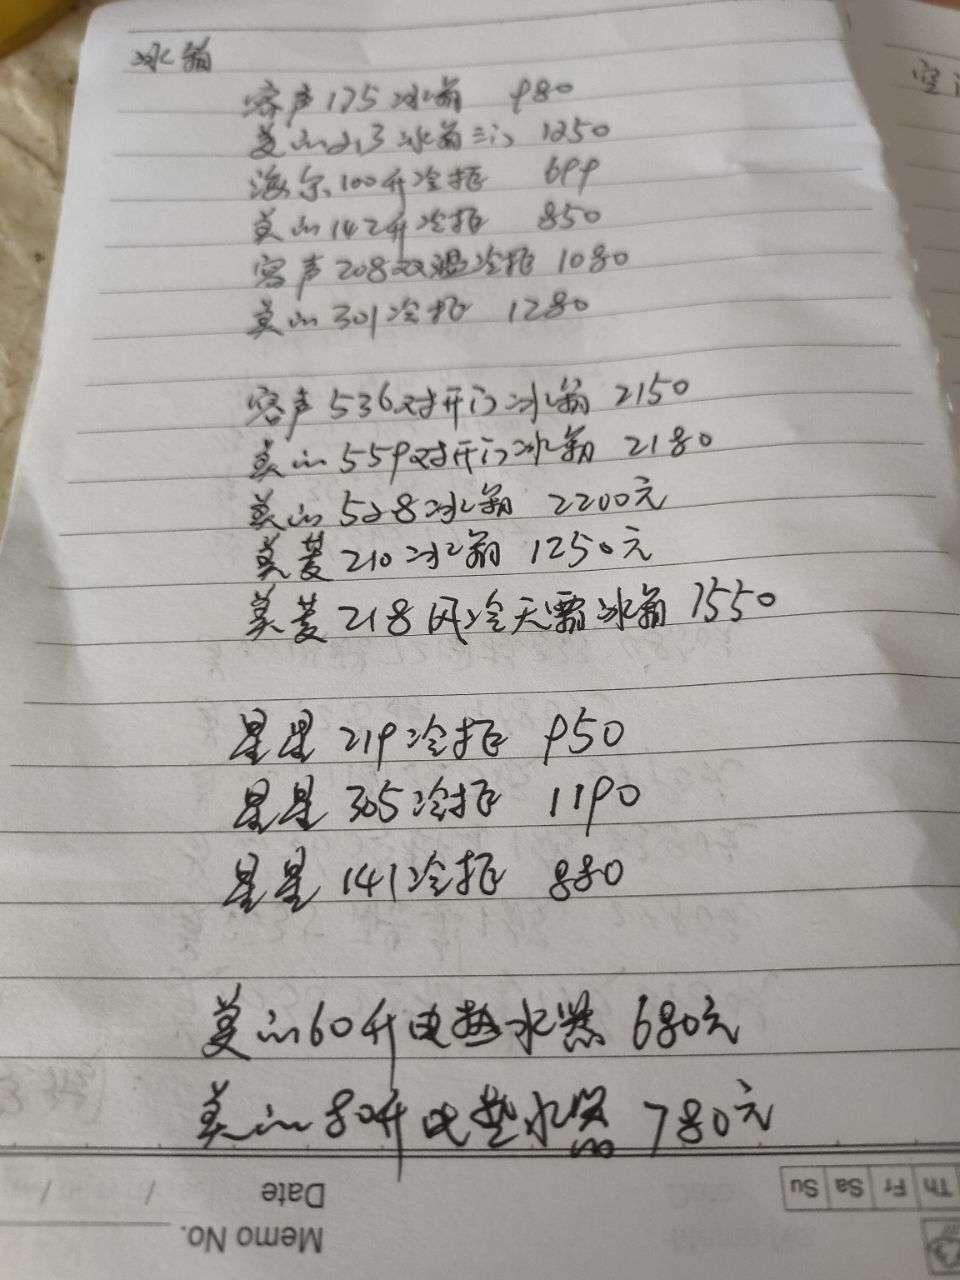 冰箱
容声175冰箱 980
美的213冰箱三门 1250
海尔100升冷柜 699
美的142升冷柜 850
容声208双温冷柜 1080
美的301冷柜 1280
容声536对开门冰箱 2150
美的559对开门冰箱 2180
美的528冰箱 2200元
美菱210冰箱 1250元
美菱218风冷无霜冰箱 1550
星星219冷柜 950
星星305冷柜 1190
星星141冷柜 880
美的60升电热水器 680元
美的80升电热水器 780元
Date / /
Memo No.
Th Fr Sa Su
空